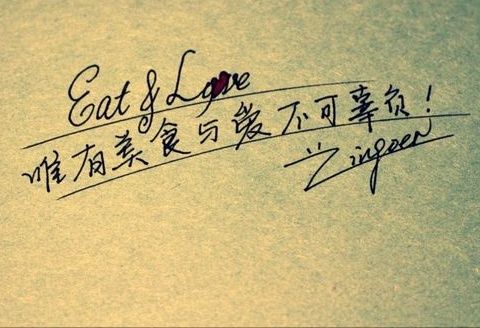 Eat & Love
唯有美食与爱不可辜负！